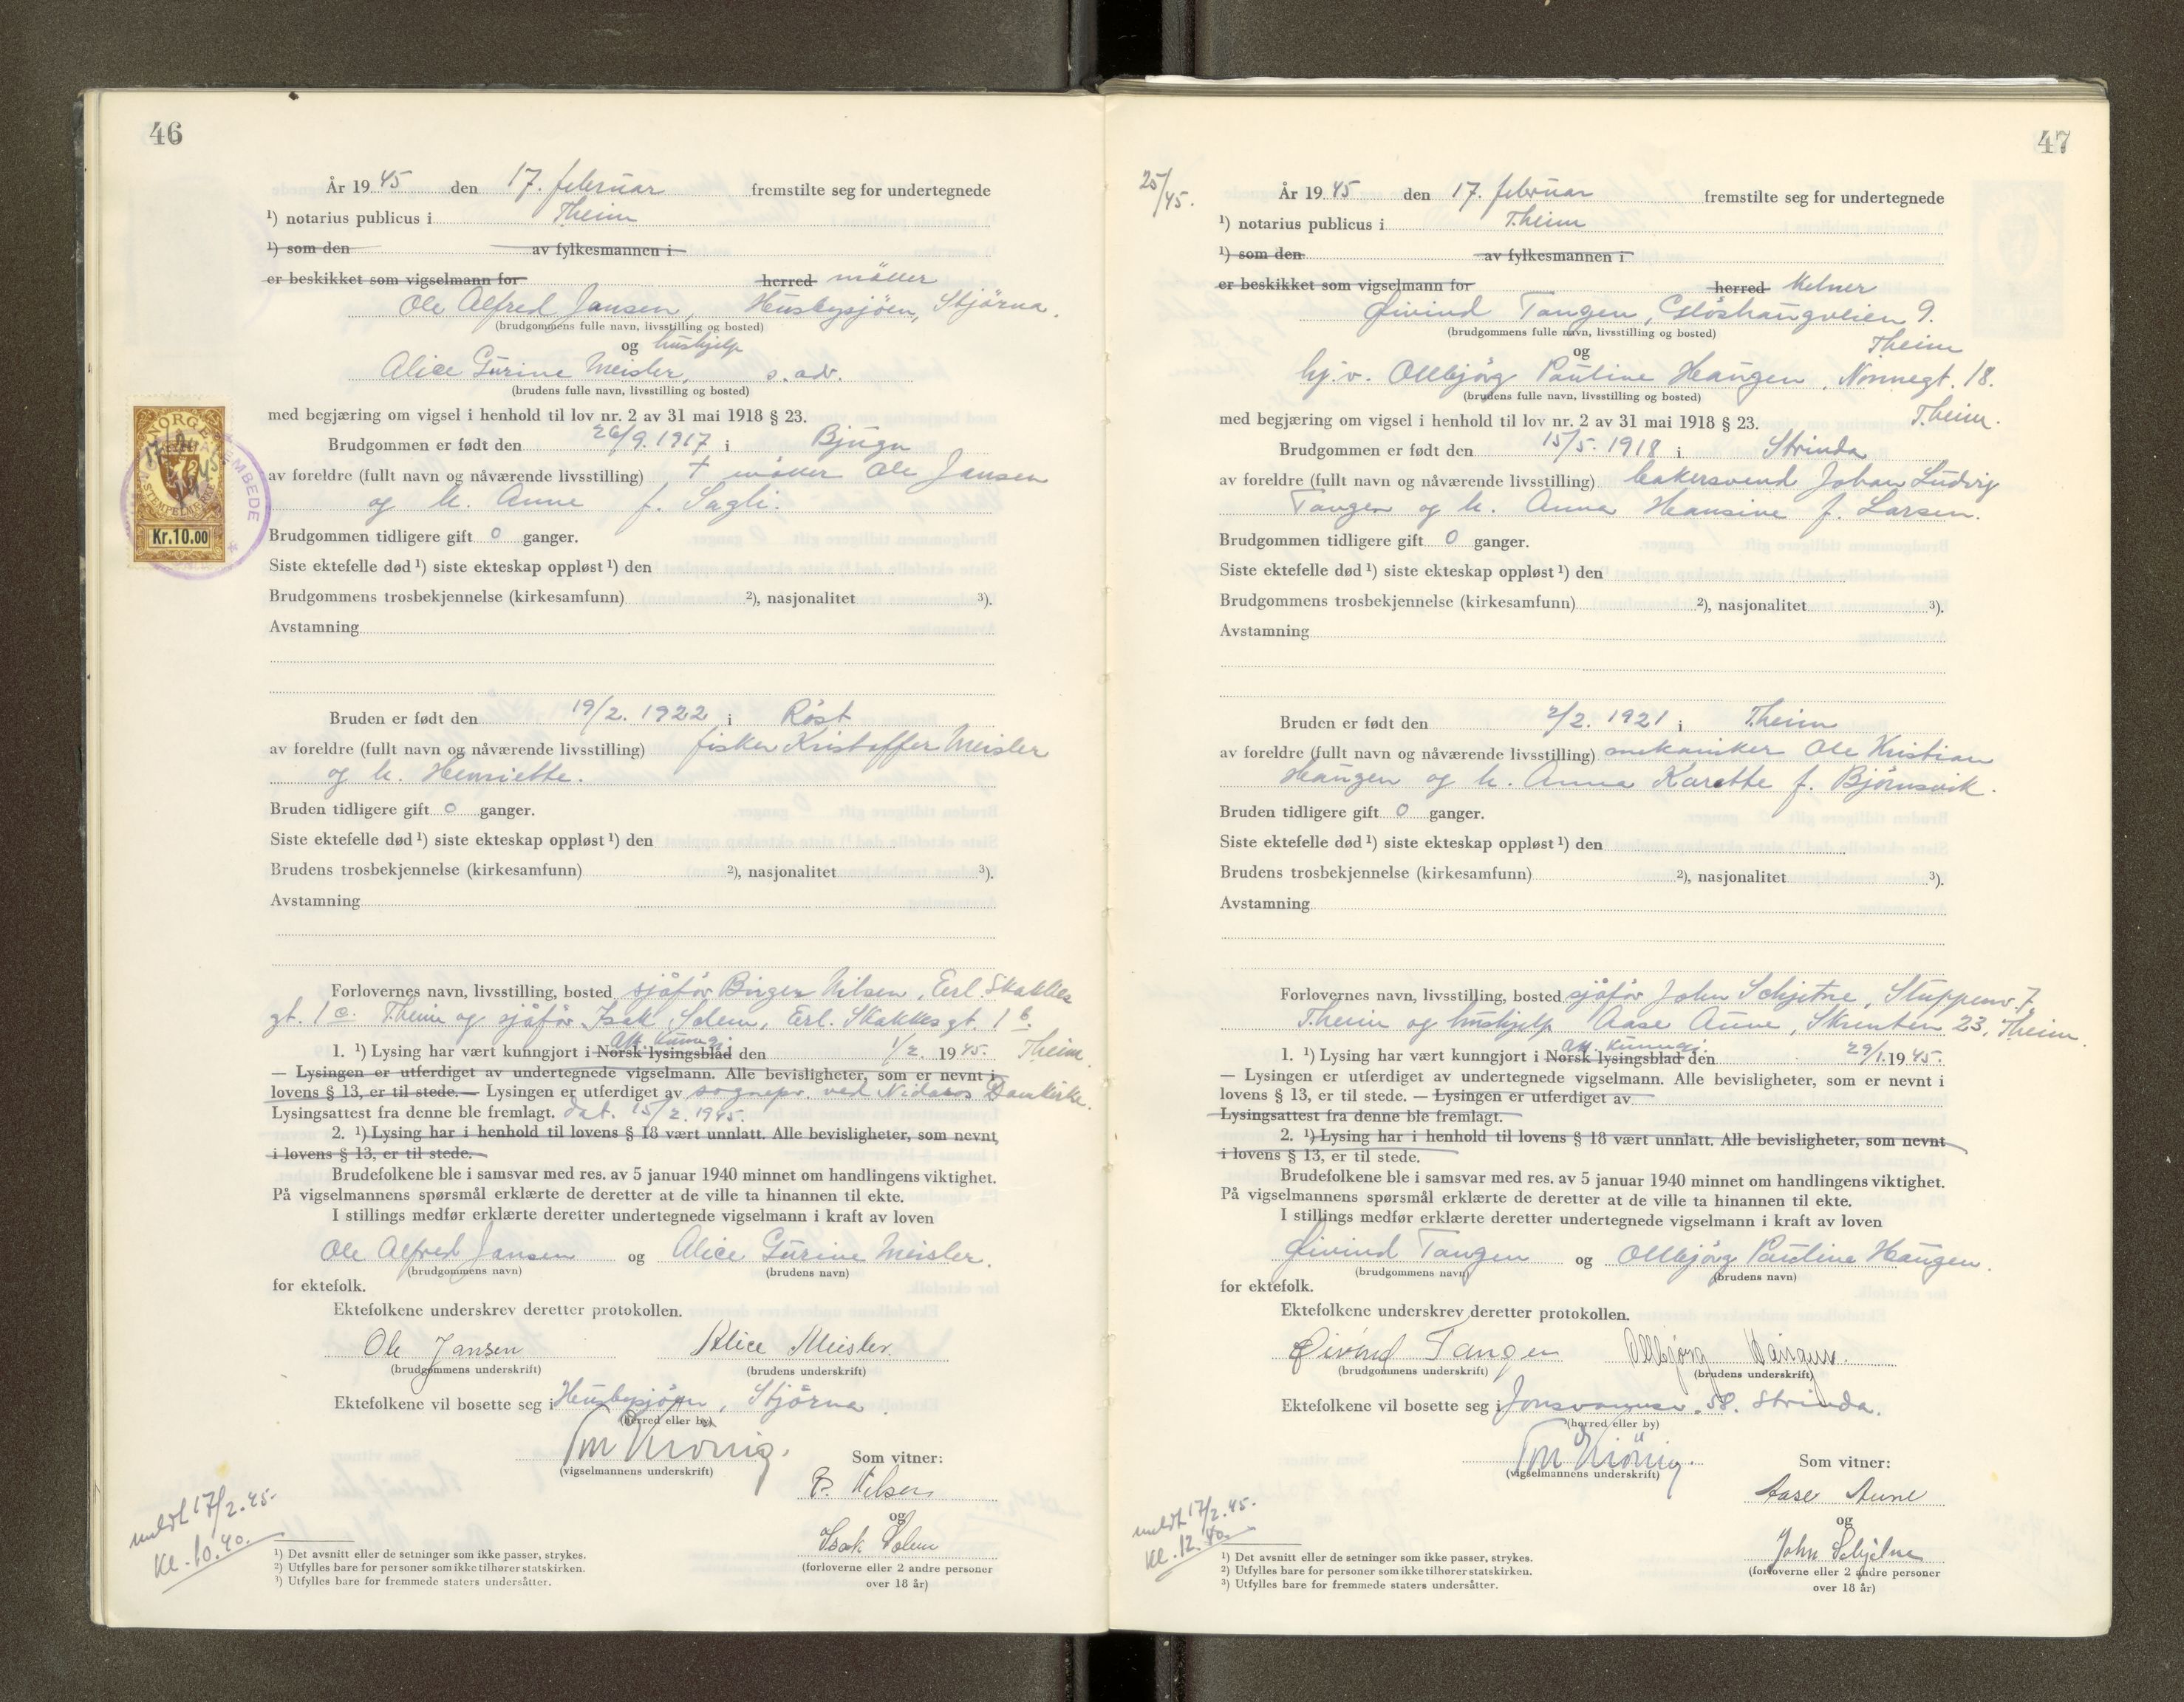 46
År 1945 den 17. februar fremstilte seg for undertegnede
¹) notarius publicus i T.heim
¹) som den av fylkesmannen i
er beskikket som vigselmann for herred møller
Ole Alfred Jansen, Husbysjøen, Stjørna.
(brudgommens fulle navn, livsstilling og bosted)
og hushjelp
Alice Gurine Meisler, s. adr.
(brudens fulle navn, livsstilling og bosted)
med begjæring om vigsel i henhold til lov nr. 2 av 31 mai 1918 § 23.
Brudgommen er født den 26/9. 1917 i Bjugn
av foreldre (fullt navn og nåværende livsstilling) † møller Ole Jansen
og h. Anne f. Sagli.
NORGE
STEMPELMERKE
Kr.10.00
EMBEDE
Brudgommen tidligere gift 0 ganger.
Siste ektefelle død ¹) siste ekteskap oppløst ¹) den
Brudgommens trosbekjennelse (kirkesamfunn) ²), nasjonalitet ³).
Avstamning
Bruden er født den 19/2. 1922 i Røst
av foreldre (fullt navn og nåværende livsstilling) fisker Kristoffer Meisler
og h. Henriette.
Bruden tidligere gift 0 ganger.
Siste ektefelle død ¹) siste ekteskap oppløst ¹) den
Brudens trosbekjennelse (kirkesamfunn) ²), nasjonalitet ³).
Avstamning
Forlovernes navn, livsstilling, bosted sjåfør Birger Nilsen, Erl. Skakkes
gt. 1 c. T.heim og sjåfør Isak Solem, Erl. Skakkes gt. 1 b.
T.heim
1. ¹) Lysing har vært kunngjort i Norsk lysingsblad den 1/2. 1945.
— Lysingen er utferdiget av undertegnede vigselmann. Alle bevisligheter, som er nevnt i
lovens § 13, er til stede. — Lysingen er utferdiget av sognepr. ved Nidaros Domkirke.
Lysingsattest fra denne ble fremlagt. dat. 15/2. 1945.
2. ¹) Lysing har i henhold til lovens § 18 vært unnlatt. Alle bevisligheter, som nevnt
i lovens § 13, er til stede.
Brudefolkene ble i samsvar med res. av 5 januar 1940 minnet om handlingens viktighet.
På vigselmannens spørsmål erklærte de deretter at de ville ta hinannen til ekte.
I stillings medfør erklærte deretter undertegnede vigselmann i kraft av loven
Ole Alfred Jansen og Alice Gurine Meisler.
(brudgommens navn) (brudens navn)
for ektefolk.
Ektefolkene underskrev deretter protokollen.
Ole Jansen Alice Meisler.
(brudgommens underskrift) (brudens underskrift)
Ektefolkene vil bosette seg i Husbysjøen, Stjørna.
(herred eller by)
(vigselmannens underskrift)
Som vitner:
B. Nilsen
og
Isak Solem
(forloverne eller 2 andre personer
over 18 år)
meldt 17/2. 45.
Kl. 10.40.
¹) Det avsnitt eller de setninger som ikke passer, strykes.
²) Utfylles bare for personer som ikke tilhører statskirken.
³) Utfylles bare for fremmede staters undersåtter.
47
25/45.
År 1945 den 17. februar fremstilte seg for undertegnede
¹) notarius publicus i T.heim
¹) som den av fylkesmannen i
er beskikket som vigselmann for herred Kelner
Øivind Tangen, Gløshaugveien 9.
(brudgommens fulle navn, livsstilling og bosted)
og T.heim
hj.v. Ollbjørg Pauline Haugen, Nonnegt. 18.
(brudens fulle navn, livsstilling og bosted)
T.heim.
med begjæring om vigsel i henhold til lov nr. 2 av 31 mai 1918 § 23.
Brudgommen er født den 15/5. 1918 i Strinda
av foreldre (fullt navn og nåværende livsstilling) bakersvend Johan Ludvig
Tangen og h. Anna Hansine f. Larsen.
Brudgommen tidligere gift 0 ganger.
Siste ektefelle død ¹) siste ekteskap oppløst ¹) den
Brudgommens trosbekjennelse (kirkesamfunn) ²), nasjonalitet ³).
Avstamning
Bruden er født den 2/2. 1921 i T.heim
av foreldre (fullt navn og nåværende livsstilling) mekaniker Ole Kristian
Haugen og h. Anna Karette f. Bjørnsvik.
Bruden tidligere gift 0 ganger.
Siste ektefelle død ¹) siste ekteskap oppløst ¹) den
Brudens trosbekjennelse (kirkesamfunn) ²), nasjonalitet ³).
Avstamning
Forlovernes navn, livsstilling, bosted sjåfør John Schjetne, Stuppenv. 7,
T.heim og hushjelp Aase Aune, Skrenten 23, T.heim.
1. ¹) Lysing har vært kunngjort i Norsk lysingsblad den 29/1. 1945.
— Lysingen er utferdiget av undertegnede vigselmann. Alle bevisligheter, som er nevnt i
lovens § 13, er til stede. — Lysingen er utferdiget av
Lysingsattest fra denne ble fremlagt.
2. ¹) Lysing har i henhold til lovens § 18 vært unnlatt. Alle bevisligheter, som nevnt
i lovens § 13, er til stede.
Brudefolkene ble i samsvar med res. av 5 januar 1940 minnet om handlingens viktighet.
På vigselmannens spørsmål erklærte de deretter at de ville ta hinannen til ekte.
I stillings medfør erklærte deretter undertegnede vigselmann i kraft av loven
Øivind Tangen og Ollbjørg Pauline Haugen.
(brudgommens navn) (brudens navn)
for ektefolk.
Ektefolkene underskrev deretter protokollen.
Øivind Tangen Ollbjørg Haugen.
(brudgommens underskrift) (brudens underskrift)
Ektefolkene vil bosette seg i Jonsvannsv. 58. Strinda.
(herred eller by)
(vigselmannens underskrift)
Som vitner:
Aase Aune
og
John Schjetne
(forloverne eller 2 andre personer
over 18 år)
meldt 17/2. 45.
Kl. 12.40.
¹) Det avsnitt eller de setninger som ikke passer, strykes.
²) Utfylles bare for personer som ikke tilhører statskirken.
³) Utfylles bare for fremmede staters undersåtter.